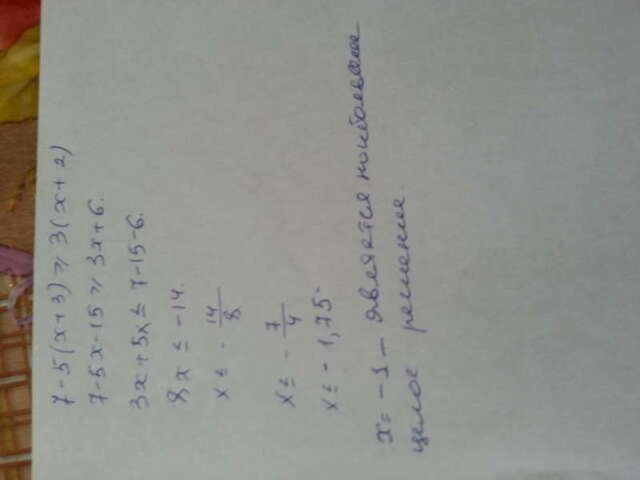 7-5(x+3) ⩾ 3(x+2)
7-5x-15 ⩾ 3x+6.
3x+5x ≤ 7-15-6.
8x ≤ -14.
x ≤ - 14/8
x ≤ - 7/4
x ≤ - 1,75-
x = -1 - является наибольшее
целое решение.